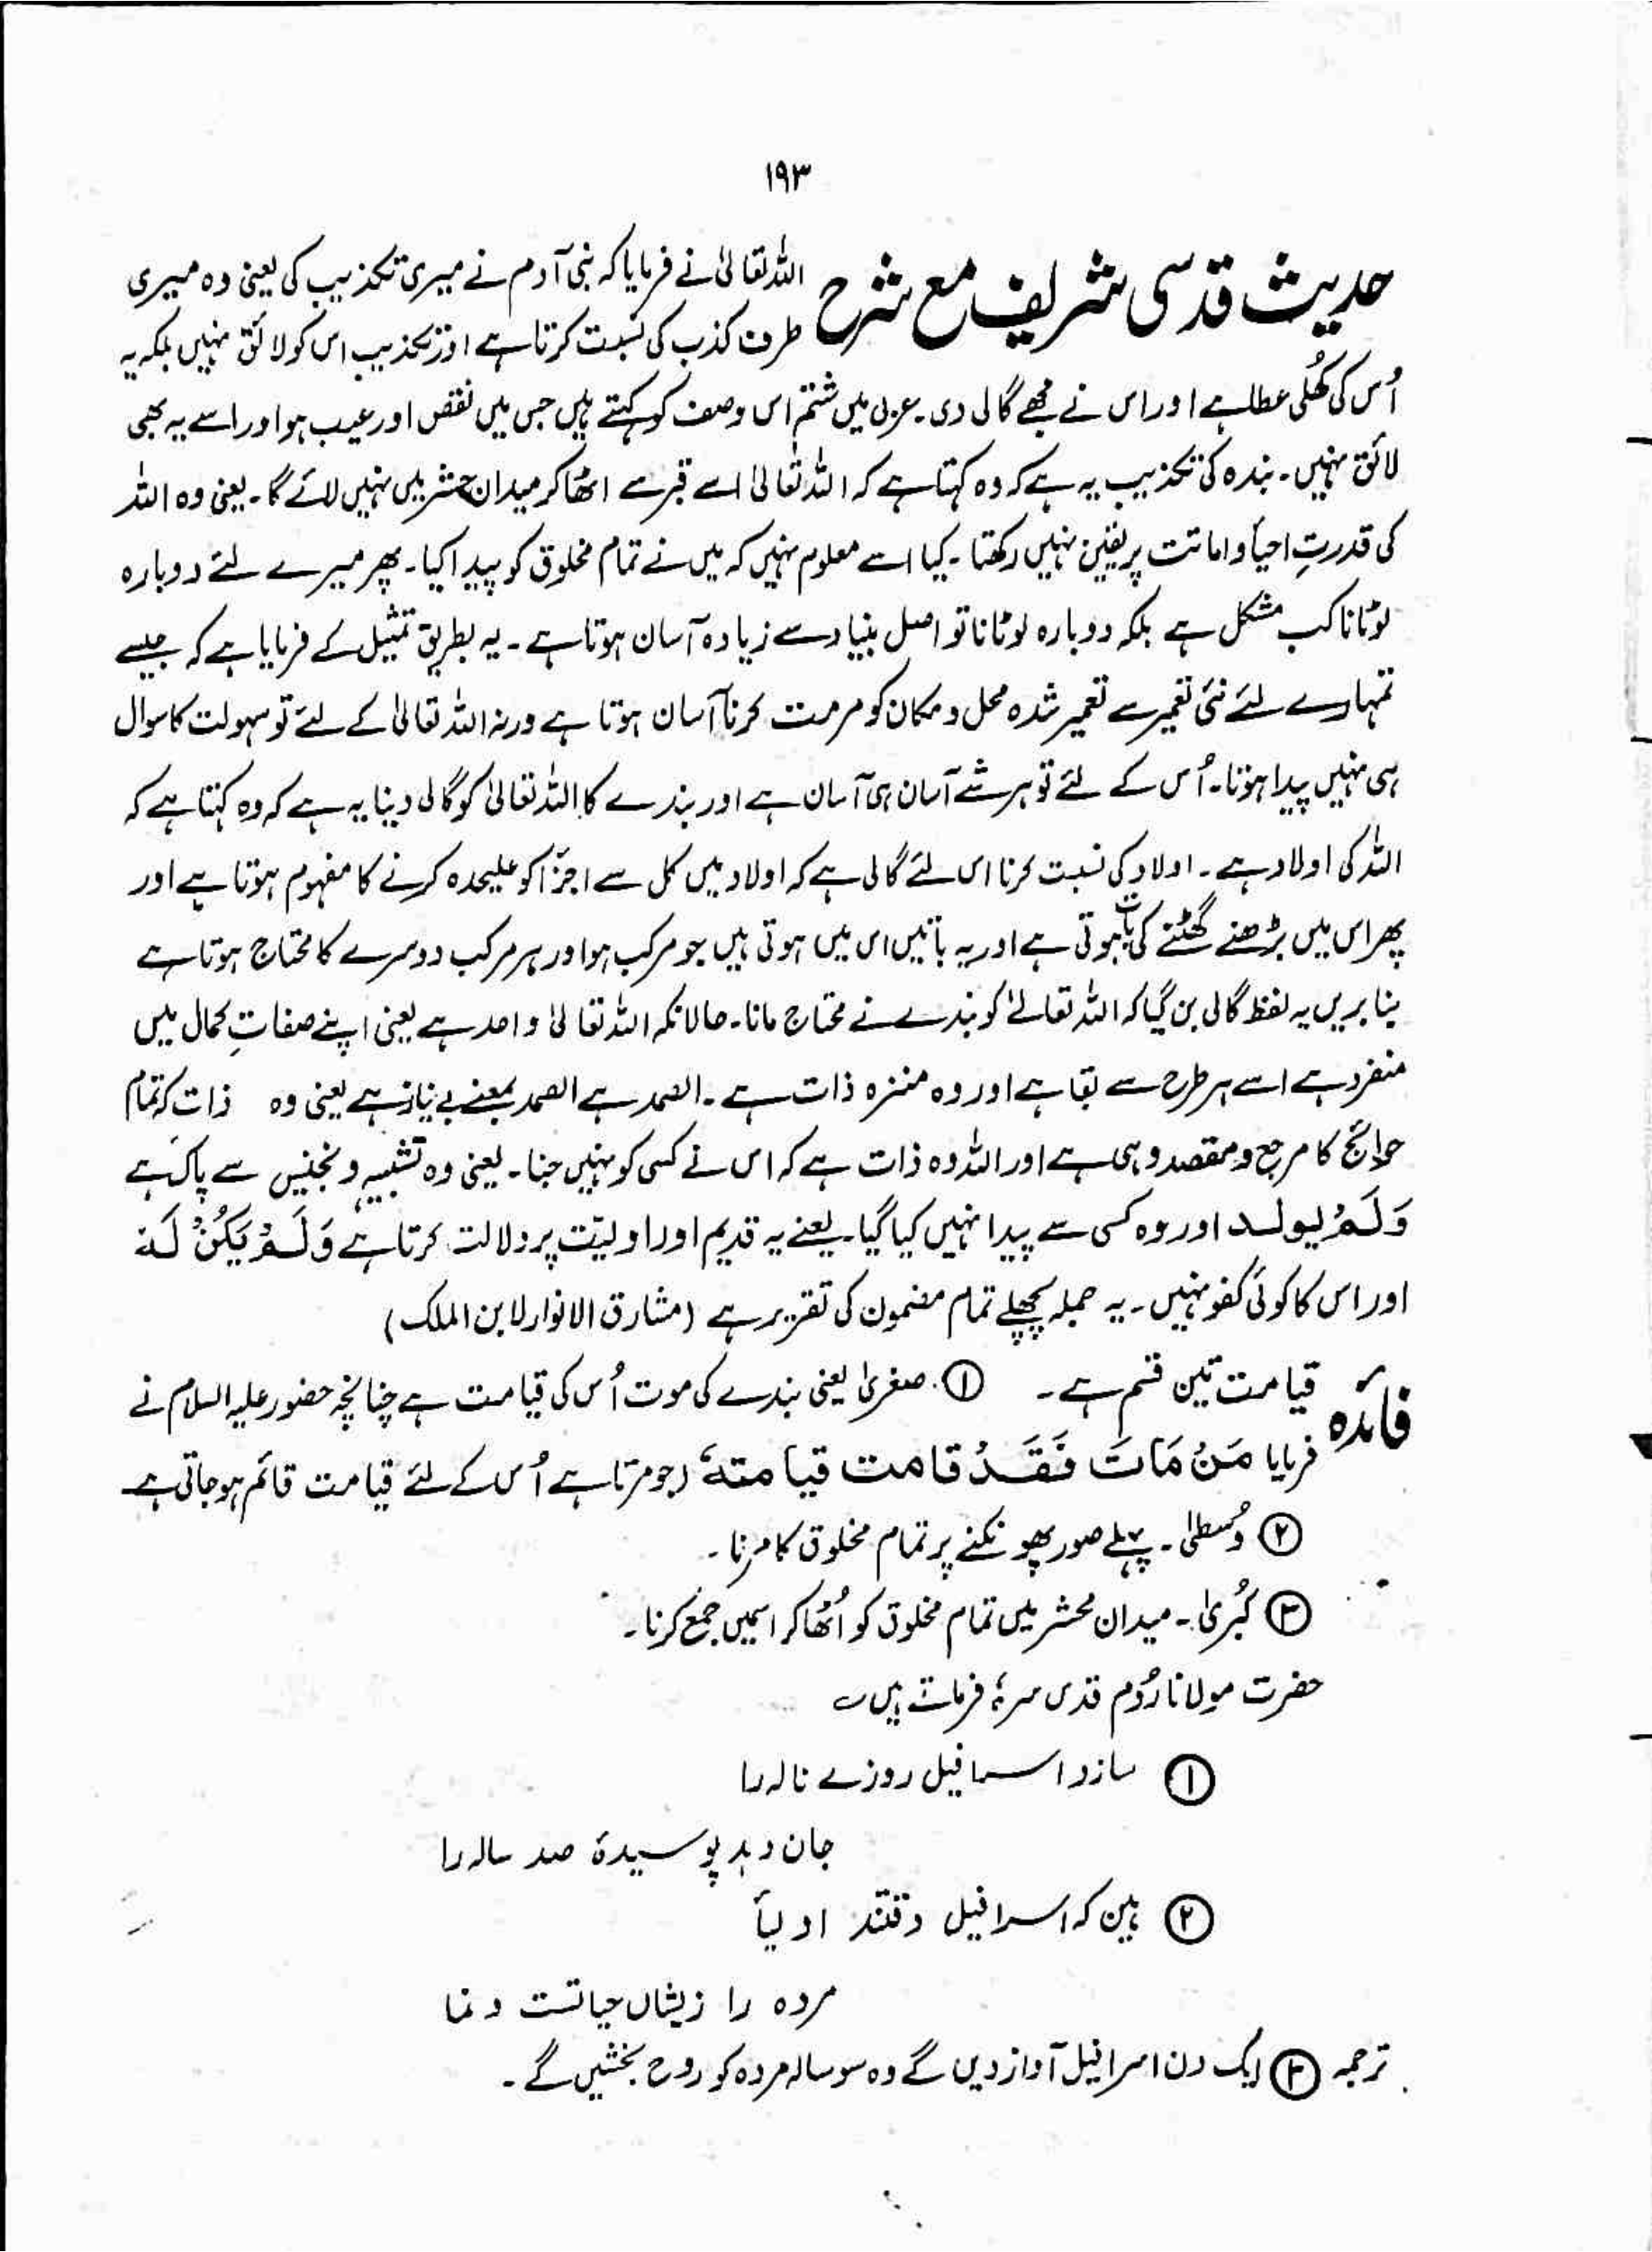 ۱۹۳
حدیث قدسی شریف مع شرح
اللہ تعالیٰ نے فرمایا کہ بنی آدم نے میری تکذیب کی یعنی وہ میری
طرف کذب کی نسبت کرتا ہے اور تکذیب اس کو لائق نہیں بلکہ یہ
اُس کی کھُلی عطا ہے اور اس نے مجھے گالی دی۔ عربی میں شتم اس وصف کو کہتے ہیں جس میں نقص اور عیب ہو اور اسے یہ بھی
لائق نہیں۔ بندہ کی تکذیب یہ ہے کہ وہ کہتا ہے کہ اللہ تعالیٰ اسے قبر سے اٹھا کر میدان حشر میں نہیں لائے گا۔ یعنی وہ اللہ
کی قدرتِ احیأ و اماتت پر یقین نہیں رکھتا۔ کیا اسے معلوم نہیں کہ میں نے تمام مخلوق کو پیدا کیا۔ پھر میرے لئے دوبارہ
لوٹانا کب مشکل ہے بلکہ دوبارہ لوٹانا تو اصل بنیاد سے زیادہ آسان ہوتا ہے۔ یہ بطریق تمثیل کے فرمایا ہے کہ جیسے
تمہارے لئے نئی تعمیر سے تعمیر شدہ محل و مکان کو مرمت کرنا آسان ہوتا ہے ورنہ اللہ تعالیٰ کے لئے تو سہولت کا سوال
ہی نہیں پیدا ہوتا۔ اُس کے لئے تو ہر شے آسان ہی آسان ہے اور بندے کا اللہ تعالیٰ کو گالی دینا یہ ہے کہ وہ کہتا ہے کہ
اللہ کی اولاد ہے۔ اولاد کی نسبت کرنا اس لئے گالی ہے کہ اولاد میں کل سے اجزأ کو علیحدہ کرنے کا مفہوم ہوتا ہے اور
پھر اس میں بڑھنے گھٹنے کی بات ہوتی ہے اور یہ باتیں اس میں ہوتی ہیں جو مرکب ہو اور ہر مرکب دوسرے کا محتاج ہوتا ہے
بنا بریں یہ لفظ گالی بن گیا کہ اللہ تعالےٰ کو بندے نے محتاج مانا۔ حالانکہ اللہ تعالیٰ واحد ہے یعنی اپنے صفاتِ کمال میں
منفرد ہے اسے ہر طرح سے بقا ہے اور وہ منزہ ذات ہے۔ الصمد ہے الصمد بمعنے بے نیاز ہے یعنی وہ ذات کہ تمام
حوائج کا مرجع و مقصد وہی ہے اور اللہ وہ ذات ہے کہ اس نے کسی کو نہیں جنا۔ یعنی وہ تشبیہ و تجنیس سے پاک ہے
وَلَمْ یولد اور وہ کسی سے پیدا نہیں کیا گیا۔ یعنے یہ قدیم اور اولیّت پر دلالت کرتا ہے وَلَمْ یَکُنْ لَهٗ
اور اس کا کوئی کفو نہیں۔ یہ جملہ پچھلے تمام مضمون کی تقریر ہے (مشارق الانوار لابن الملک)
فائدہ قیامت تین قسم ہے۔ ① صغریٰ یعنی بندے کی موت اُس کی قیامت ہے چنانچہ حضور علیہ السلام نے
فرمایا مَنْ مَاتَ فَقَدْ قامت قیامتهٗ (جو مرتا ہے اُس کے لئے قیامت قائم ہو جاتی ہے
② وُسطیٰ۔ پہلے صور پھونکنے پر تمام مخلوق کا مرنا۔
③ کُبریٰ۔ میدان محشر میں تمام مخلوق کو اُٹھا کر اسمیں جمع کرنا۔
حضرت مولانا رُوم قدس سرہٗ فرماتے ہیں ؎
① سازد اسرافیل روزے نالہ را
جان دہد پوسیدۂ صد سالہ را
② ہین کہ اسرافیل وقتند اولیأ
مردہ را زیشاں حیاتست و نما
ترجمہ ③ ایک دن اسرافیل آواز دیں گے وہ سو سالہ مردہ کو روح بخشیں گے۔